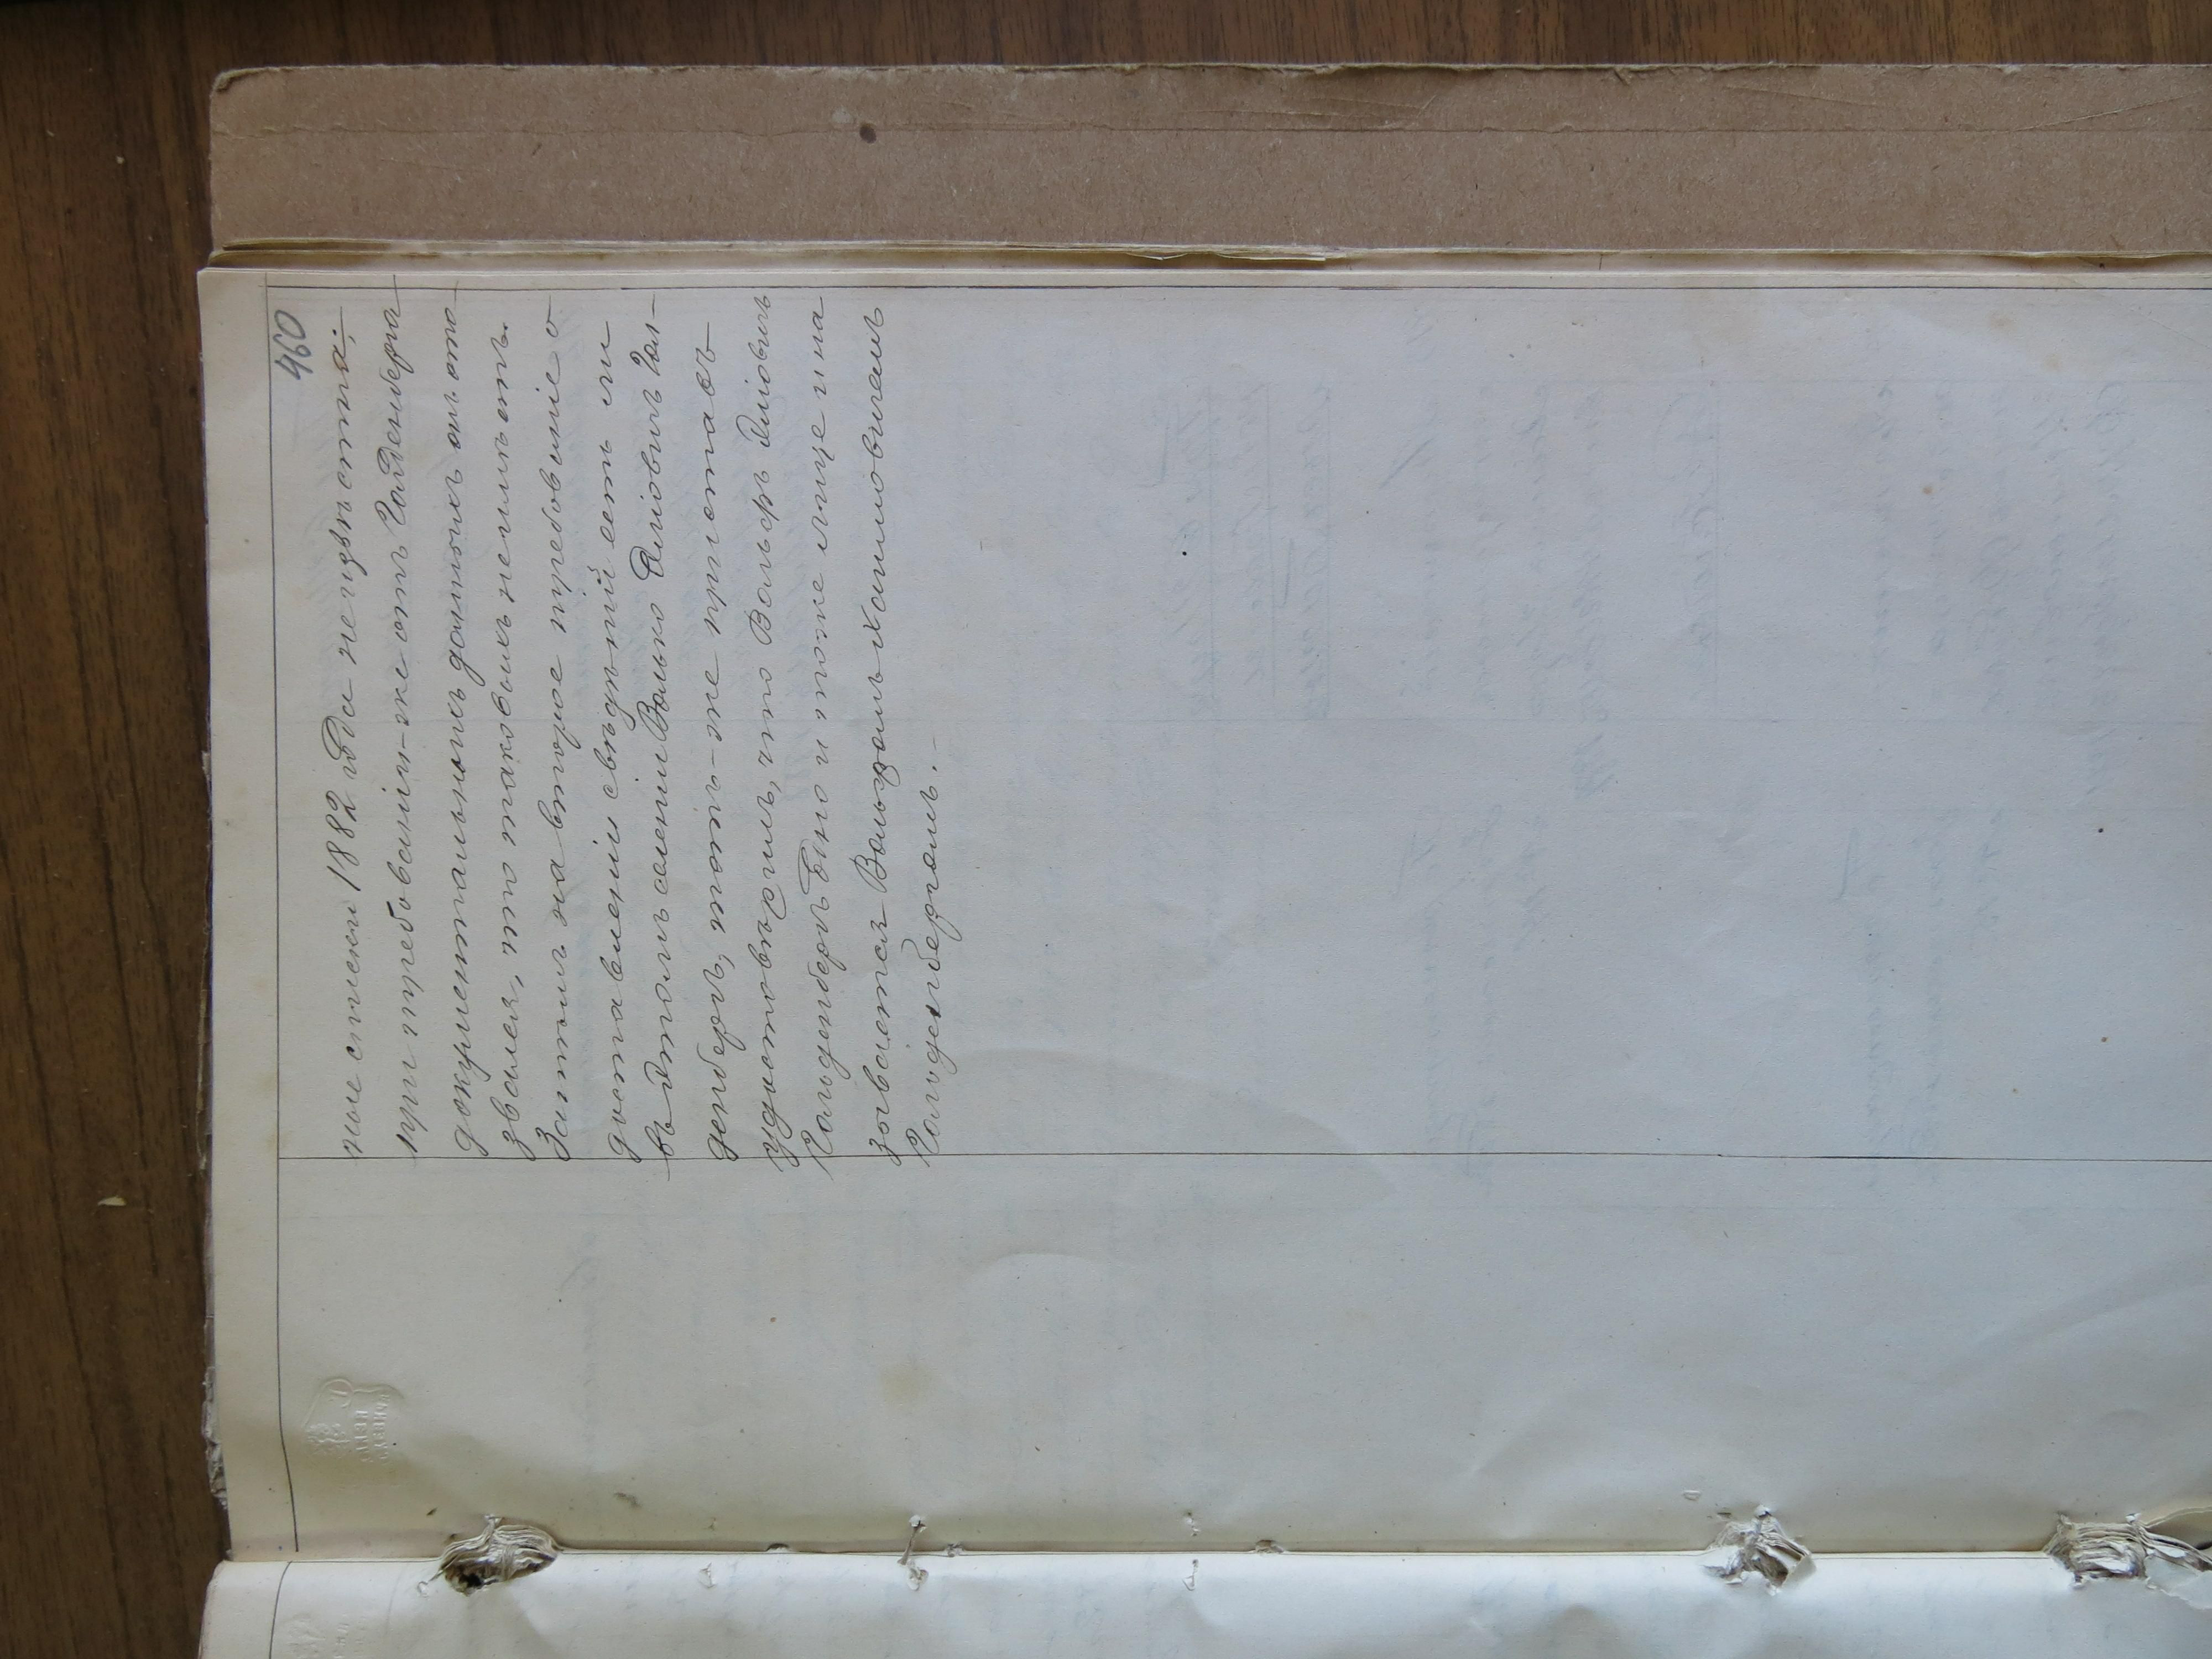 460
ные списки 1882 года неизвѣстно;
при требованіи-же отъ Гольденберга
документальныхъ данныхъ онъ ото-
звался, что таковыхъ не имѣетъ.
Затѣмъ на второе требованіе о
доставленіи свѣдѣній есть ли
въ томъ селеніи Волько Хаимовичъ Гол-
денбергъ, тотъ-же приставъ
удостовѣрилъ, что Вольфъ Хаимовичъ
Гольденбергъ одно и тоже лице и на
зывается Вольфомъ Хаимовичемъ
Гольденбергомъ.-